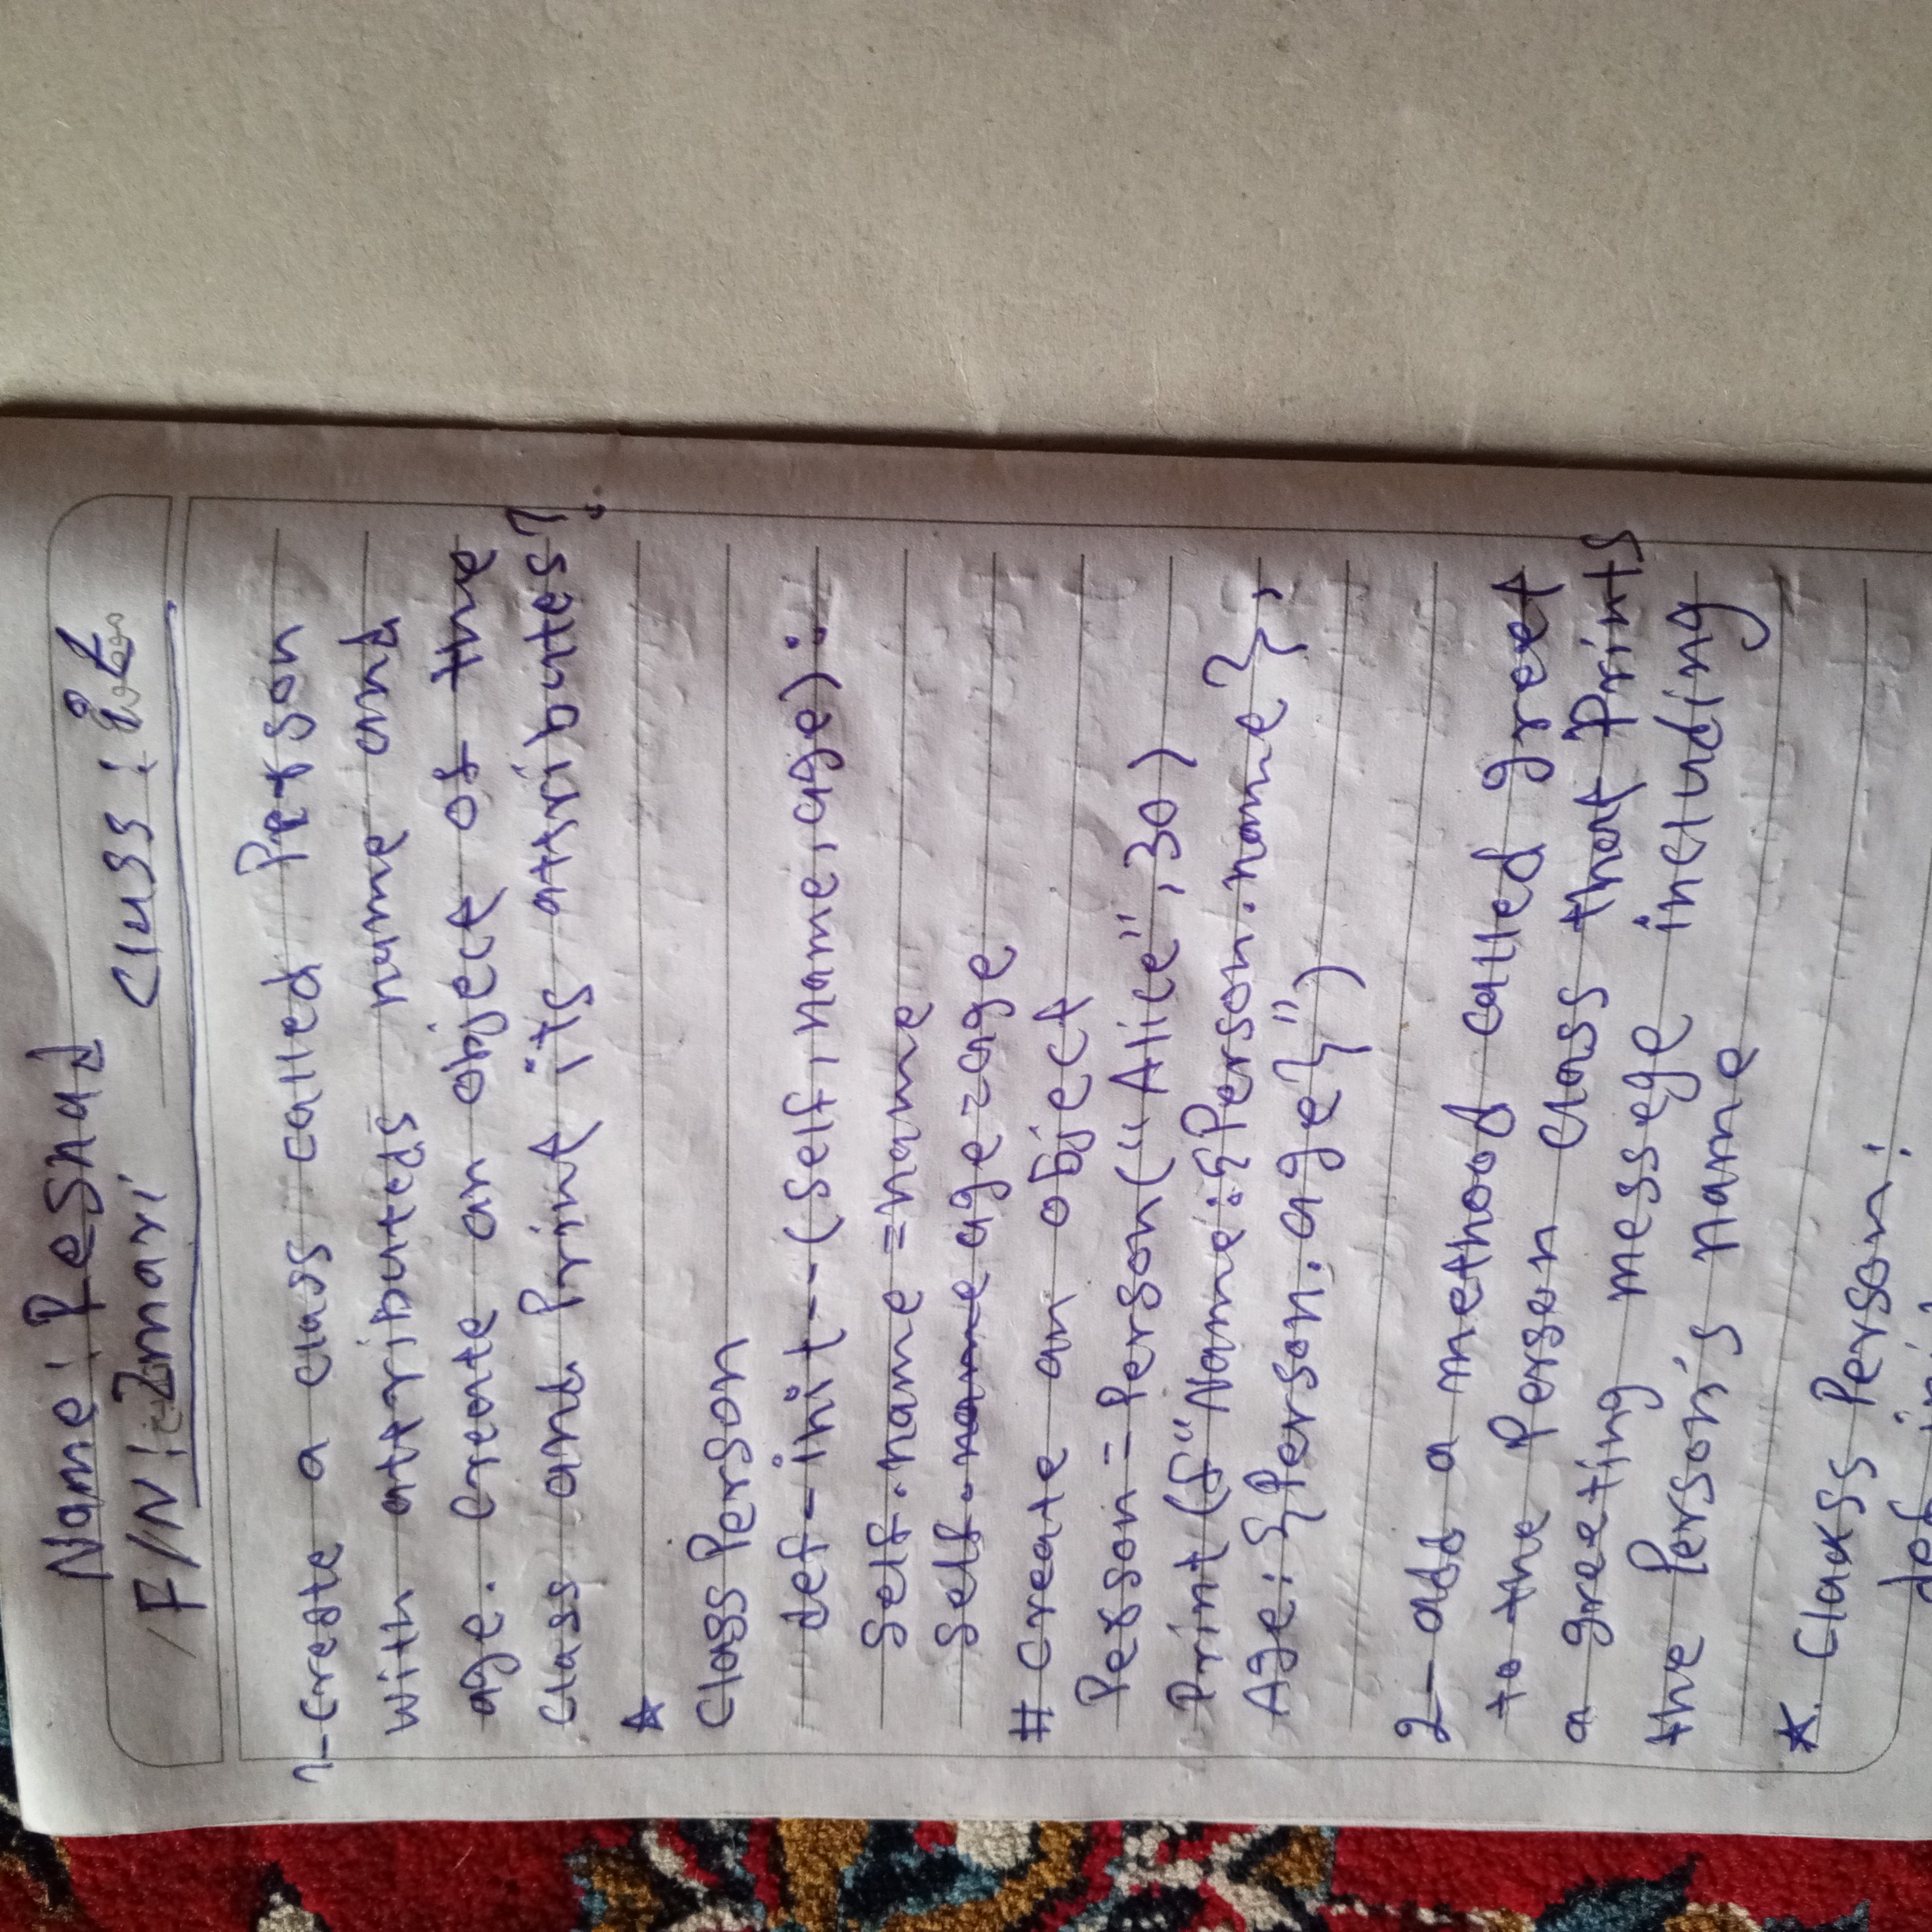 Name: Pesnad
F/N: Zmari Class:
1-create a class called Person
with atteributeds name and
age. create an object of the
class and Print its attributes?
☆
Class Person
def-init--(self,name,age):
self.name=name
self.name age=age
# create an object
Person=Person("Alice",30)
Print(f"Name:{Person.name},
Age:{Person.age}")
2-add a methood called greet
to the Person class that Prints
a greeting messege including
the Person's name
*. Class Person: